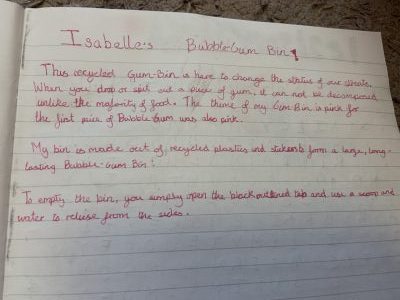 Isabelle's Bubble Gum Bin!
This recycled Gum-Bin is here to change the status of our streets.
When you drop or spit out a piece of gum, it can not be decomposed
unlike the majority of food. The theme of my Gum-Bin is pink for
the first piece of Bubble Gum was also pink.
My bin is made out of, recycled plastics and stickers to form a large, long-
lasting Bubble-Gum Bin!
To empty the bin, you simply open the black outlined tab and use a scoop and
water to release from the sides.